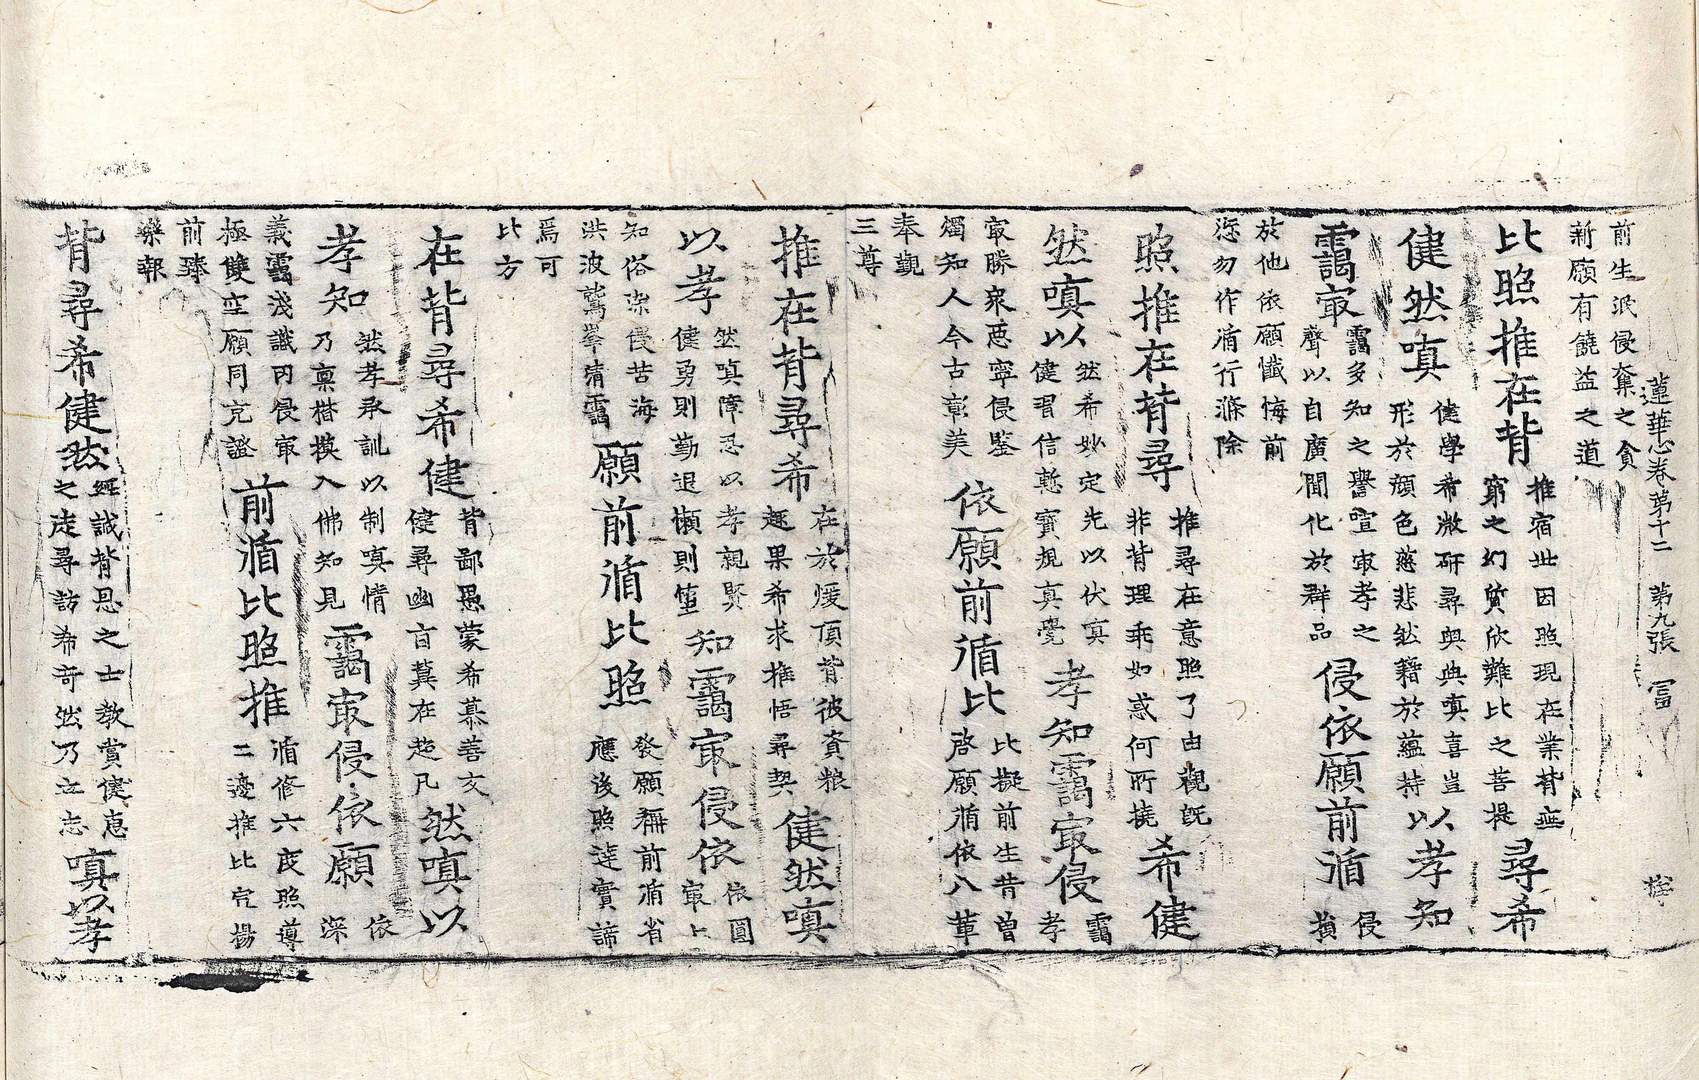 前生泯侵棄之貪
新願有饒益之道
蓮華心卷第十二 第九張 冨
比照推在背 推宿世因照現在業背無
窮之幻質欣難比之菩提 尋希
健然嗔 健學希微研尋奥典嗔喜豈
形於顔色慈悲然籍於蘊持 以孝知
靄㝡 靄多知之譽喧㝡孝之
聲以自廣聞化於群品 侵依願前循 侵
損
於他依願懺悔前
㤀勿作循行滌除
照推在背尋 推尋在意照了由觀旣
非背理乖如惑何所撓 希健
然嗔以 然希妙定先以伏嗔
健習信慙實規真覺 孝知靄㝡侵 靄
孝
㝡勝衆惡寧侵鑒
燭知人今古彰美 依願前循比 比擬前生昔曽
啓願循依八華
奉觀
三尊
推在背尋希 在於煖頂背彼資粮
趣果希求推悟尋契 健然嗔
以孝 然嗔障忍以孝親賢
健勇則勤退懶則墮 知靄㝡侵依 依圓
㝡上
知俗染侵苦海
洪波鷲峯清靄 願前循比照 發願稱前循省
應後照達實諦
焉可
比方
在背尋希健 背鄙愚蒙希慕善友
健尋幽盲冀在超凡 然嗔以
孝知 然孝承訓以制嗔情
乃禀楷模入佛知見 靄㝡侵依願 依
深
義靄淺識罔侵㝡
極雙空願同克證 前循比照推 循修六度照導
二邊推比宂揚
前臻
樂報
背尋希健然 經誡背恩之士教賞健惠
之徒尋訪希奇然乃立志 嗔以孝